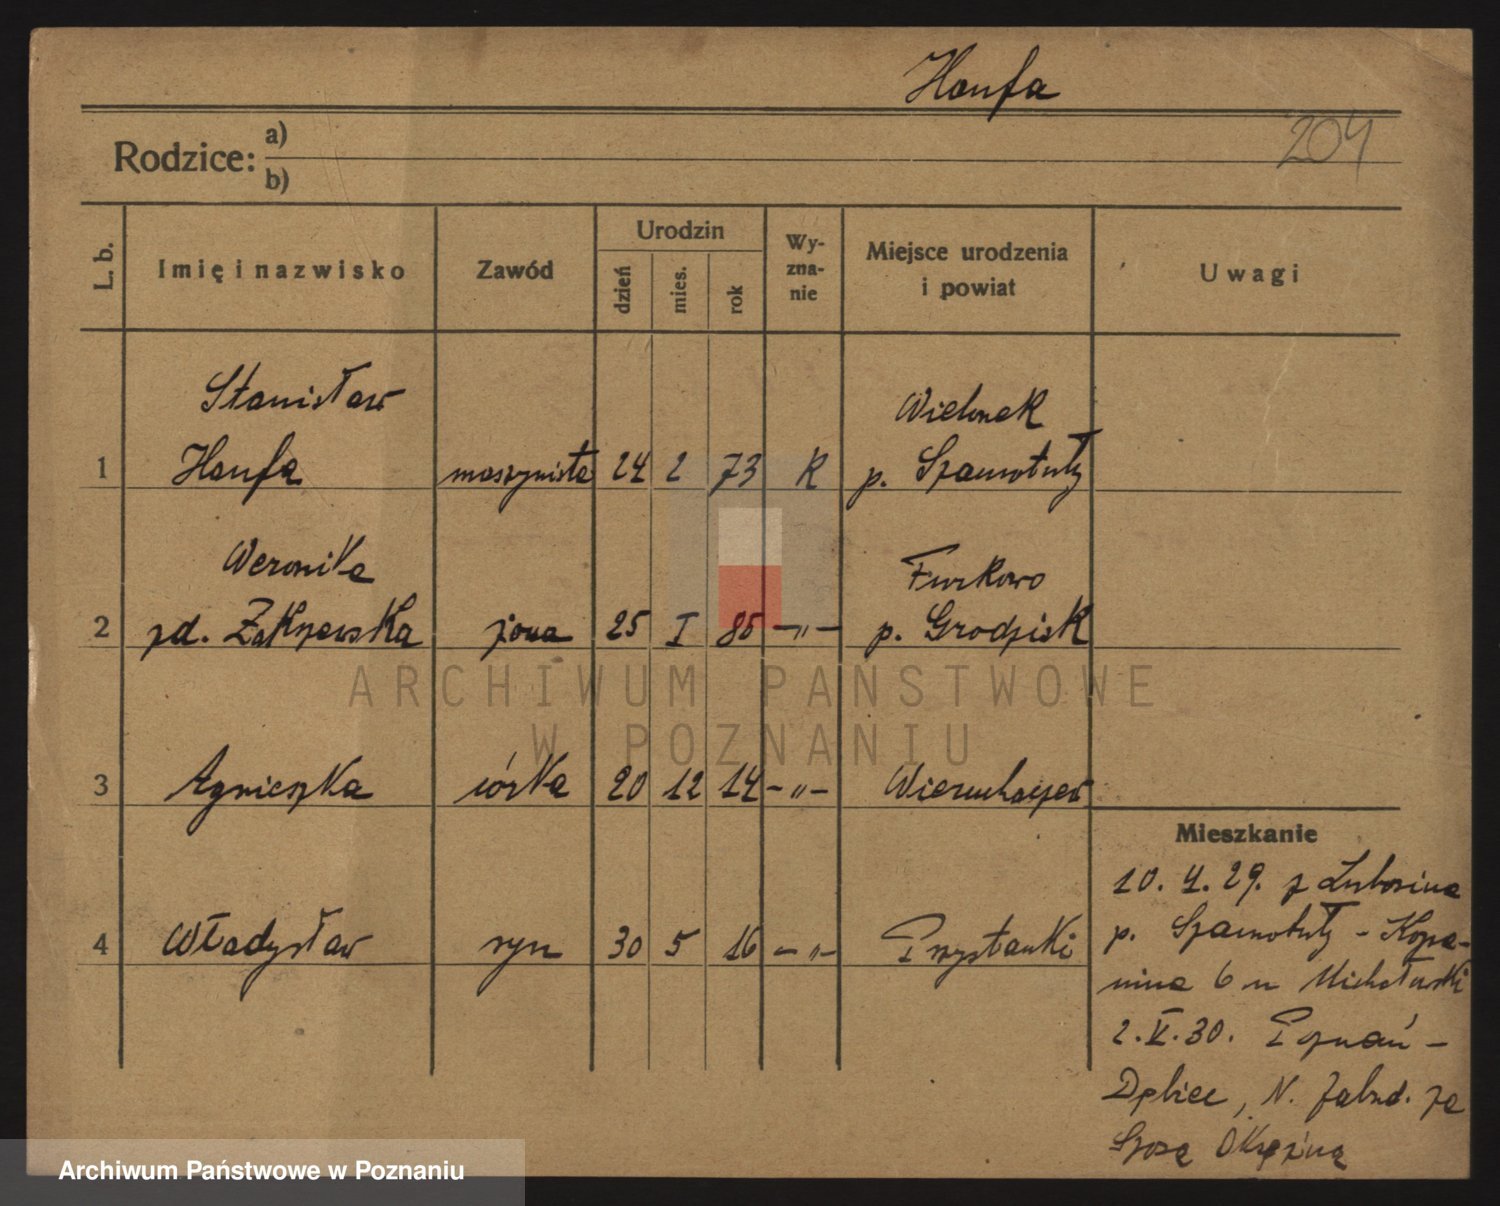 Haufa
204
Rodzice: a)
b)
L. b. Imię i nazwisko Zawód Urodzin dzień mies. rok Wy-zna-nie Miejsce urodzenia i powiat Uwagi
Stanisław Wielonek
1 Haufa maszynista 24 2 73 K p. Szamotuły
Weronika Turkowo
2 zd. Zakrzewska żona 25 I 85 -"- p. Grodzisk
3 Agnieszka córka 20 12 14 -"-
4 Władysław syn 30 5 16 -"- Przystanki
Mieszkanie
10. 4. 29. z Lubosina
p. Szamotuły - Kopa-
nina 6 u Michalski
2. V. 30. Poznań -
Dębiec, N. Zabud. za
Szosą Okrężną
ARCHIWUM PAŃSTWOWE
W POZNANIU
Archiwum Państwowe w Poznaniu